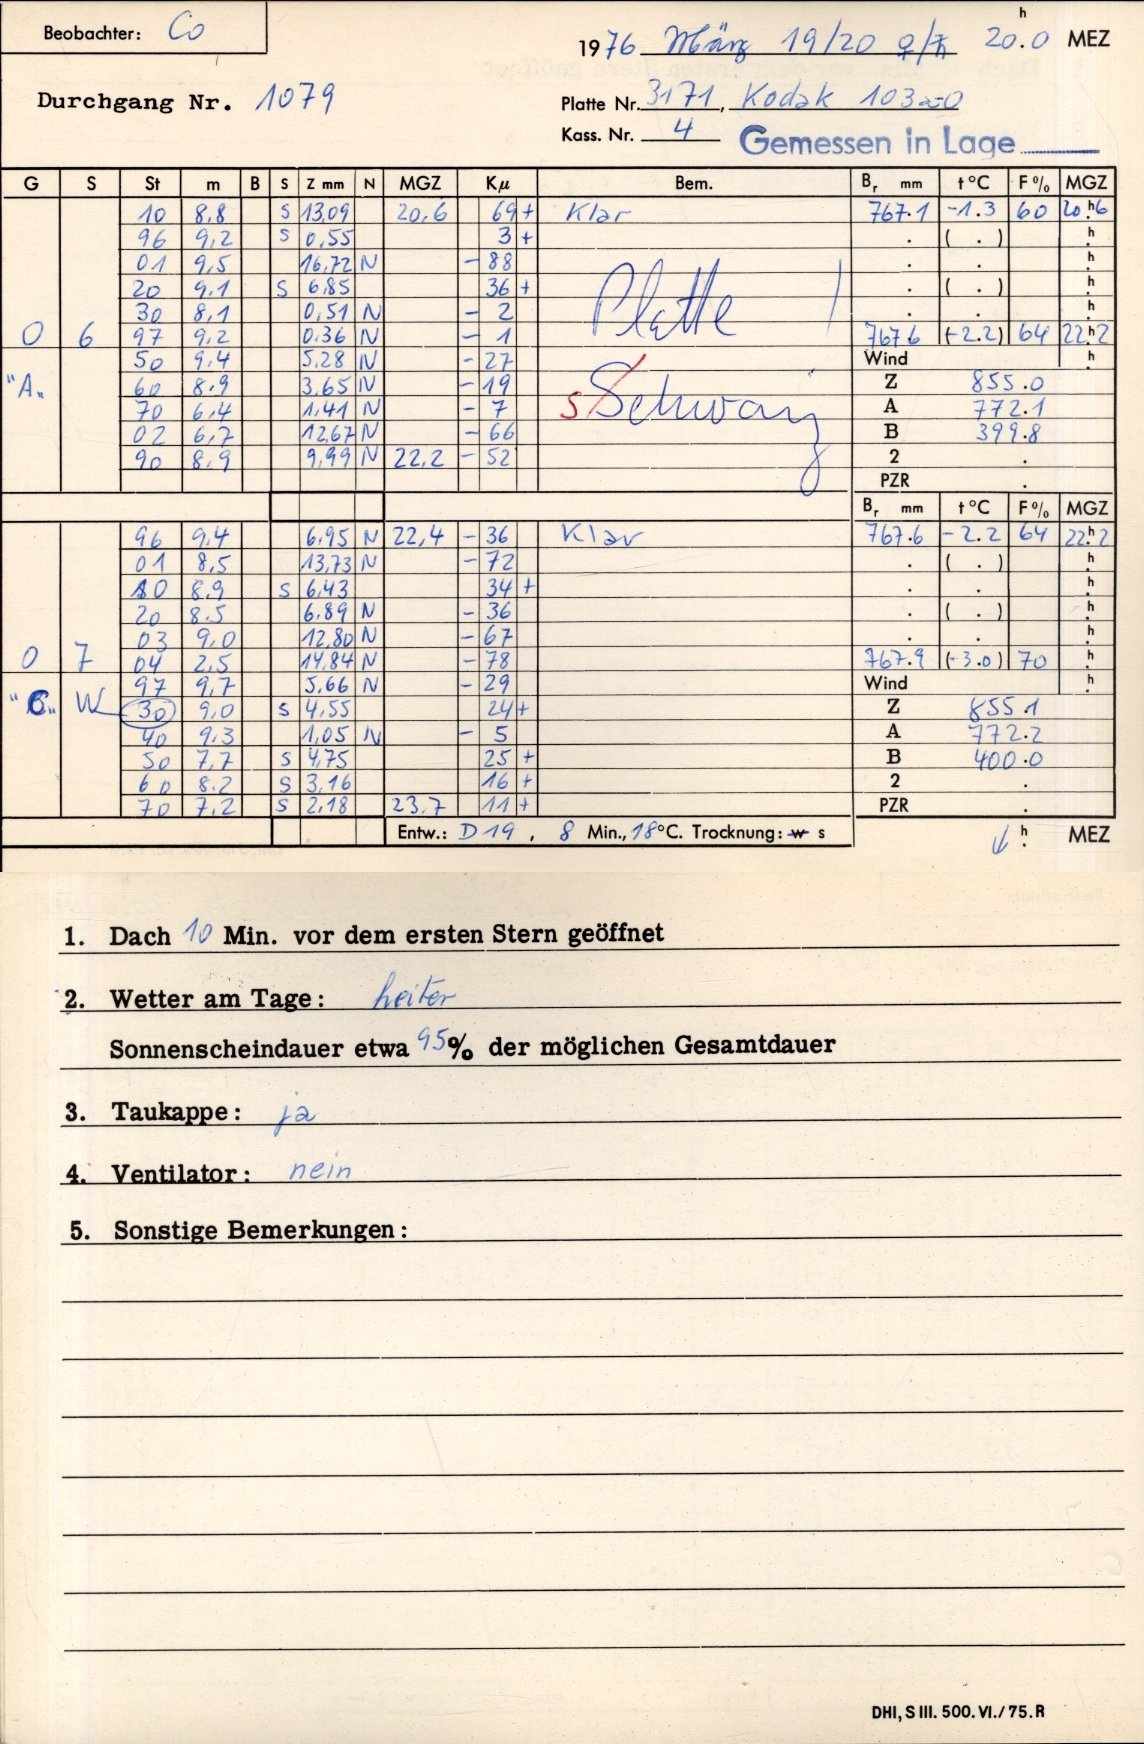 Beobachter: Co
1976 März 19/20 ♀/♄ 20.0 h MEZ
Durchgang Nr. 1079
Platte Nr. 3171, Kodak 103a-O
Kass. Nr. 4 Gemessen in Lage
G S St m B S Z mm N MGZ Kμ Bem. Br mm t °C F% MGZ
10 8.8 S 13,09 20,6 69+ Klar 767.1 -1.3 60 20.h6
96 9,2 S 0,55 3+ . ( . ) h
01 9,5 16,72 N -88 . . h
20 9.1 S 6,85 36+ . ( . ) h
30 8,1 0,51 N -2 . . h
0 6 97 9,2 0,36 N -1 Platte ! 767.6 (-2.2) 64 22.h2
50 9.4 5,28 N -27 Wind h
"A" 60 8.9 3,65 N -19 Z 855.0
70 6,4 1,41 N -7 s Schwarz A 772.1
02 6,7 12,67 N -66 B 399.8
90 8,9 9,99 N 22,2 -52 2 .
PZR .
Br mm t °C F% MGZ
96 9,4 6,95 N 22,4 -36 Klar 767.6 -2.2 64 22.h2
01 8,5 13,73 N -72 . ( . ) h
10 8.9 S 6,43 34+ . . h
20 8.5 6,89 N -36 . ( . ) h
03 9,0 12,80 N -67 . . h
0 7 04 2,5 14,84 N -78 767.9 (-3.0) 70 h
97 9,7 5,66 N -29 Wind h
"C" W 30 9,0 S 4,55 24+ Z 855.1
40 9,3 1,05 N -5 A 772.2
50 7,7 S 4,75 25+ B 400.0
60 8.2 S 3,16 16+ 2 .
70 7,2 S 2,18 23.7 11+ PZR .
Entw.: D 19, 8 Min., 18°C. Trocknung: w s ↓ h MEZ
1. Dach 10 Min. vor dem ersten Stern geöffnet
2. Wetter am Tage: heiter
Sonnenscheindauer etwa 95% der möglichen Gesamtdauer
3. Taukappe: ja
4. Ventilator: nein
5. Sonstige Bemerkungen:
DHI, S III. 500. VI./75. R